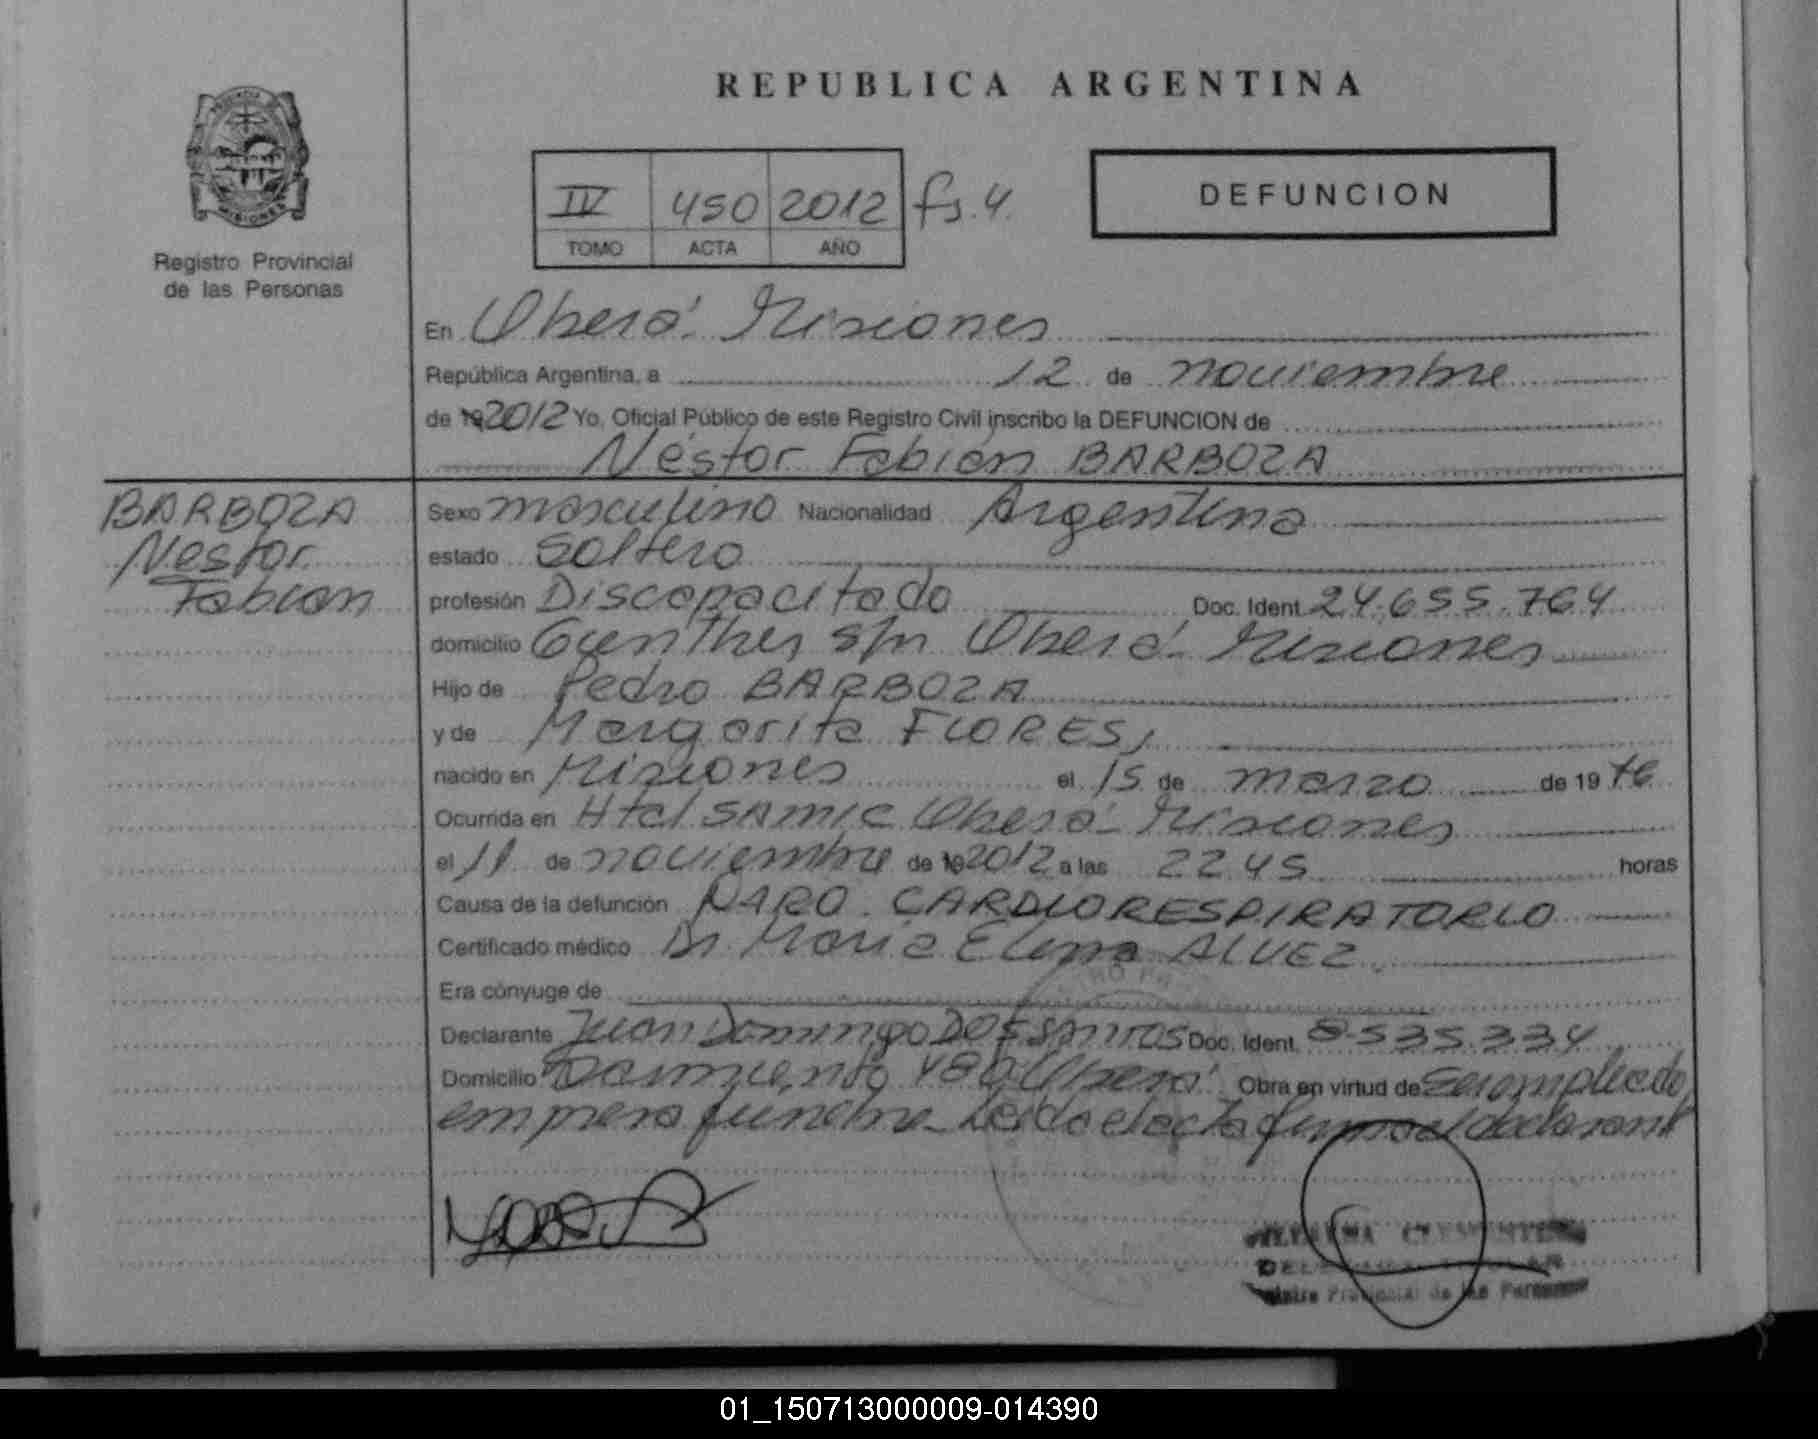 REPUBLICA ARGENTINA
PROVINCIA DE
MISIONES
Registro Provincial
de las Personas
IV 450 2012 fs. 4.
TOMO ACTA AÑO
DEFUNCION
En Oberá Misiones
República Argentina, a 12 de noviembre
de 19 2012 Yo, Oficial Público de este Registro Civil inscribo la DEFUNCION de
Néstor Fabián BARBOZA
BARBOZA
Nestor
Fabian
Sexo masculino Nacionalidad Argentina
estado Soltero
profesión Discapacitado Doc. Ident. 24.655.764
domicilio Gunther s/n Oberá Misiones
Hijo de Pedro BARBOZA
y de Margarita FLORES,
nacido en Misiones el 15 de marzo de 19 76
Ocurrida en Htal SAMIC Oberá Misiones
el 11 de noviembre de 19 2012 a las 22 45 horas
Causa de la defunción PARO CARDIORESPIRATORIO
Certificado médico Dr. Maria Elena ALVEZ
Era cónyuge de
Declarante Juan Domingo DOS SANTOS Doc. Ident. 8.535.334
Domicilio Sarmiento 480 Oberá Obra en virtud de Ser empleado
empresa fúnebre - Leida el acta firma el declarante
Registro Provincial de las Personas
01_150713000009-014390